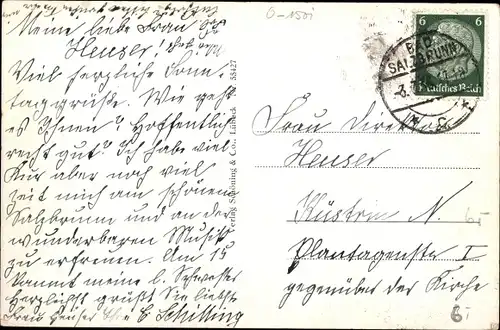 Meine liebe Frau
Heuser!
Viel herzliche Sonn-
taggrüße. Wie geht
es Ihnen? Hoffentlich
recht gut? Ich habe viel
Kur aber noch viel
Zeit mich am schönen
Salzbrunn und an der
wunderbaren Musik
zu erfreuen. Am 15
kommt meine l. Schwester
Herzlichst grüßt Sie liebste
Frau Heuser Ihre E Schilling
Verlag Schöning & Co., Lübeck
35427
6-1501
6 6
Deutsches Reich
BAD
SALZBRUNN
Frau Direktor
Heuser
Küstrin N.
Plantagenstr I
gegenüber der Kirche
6,-
6.-